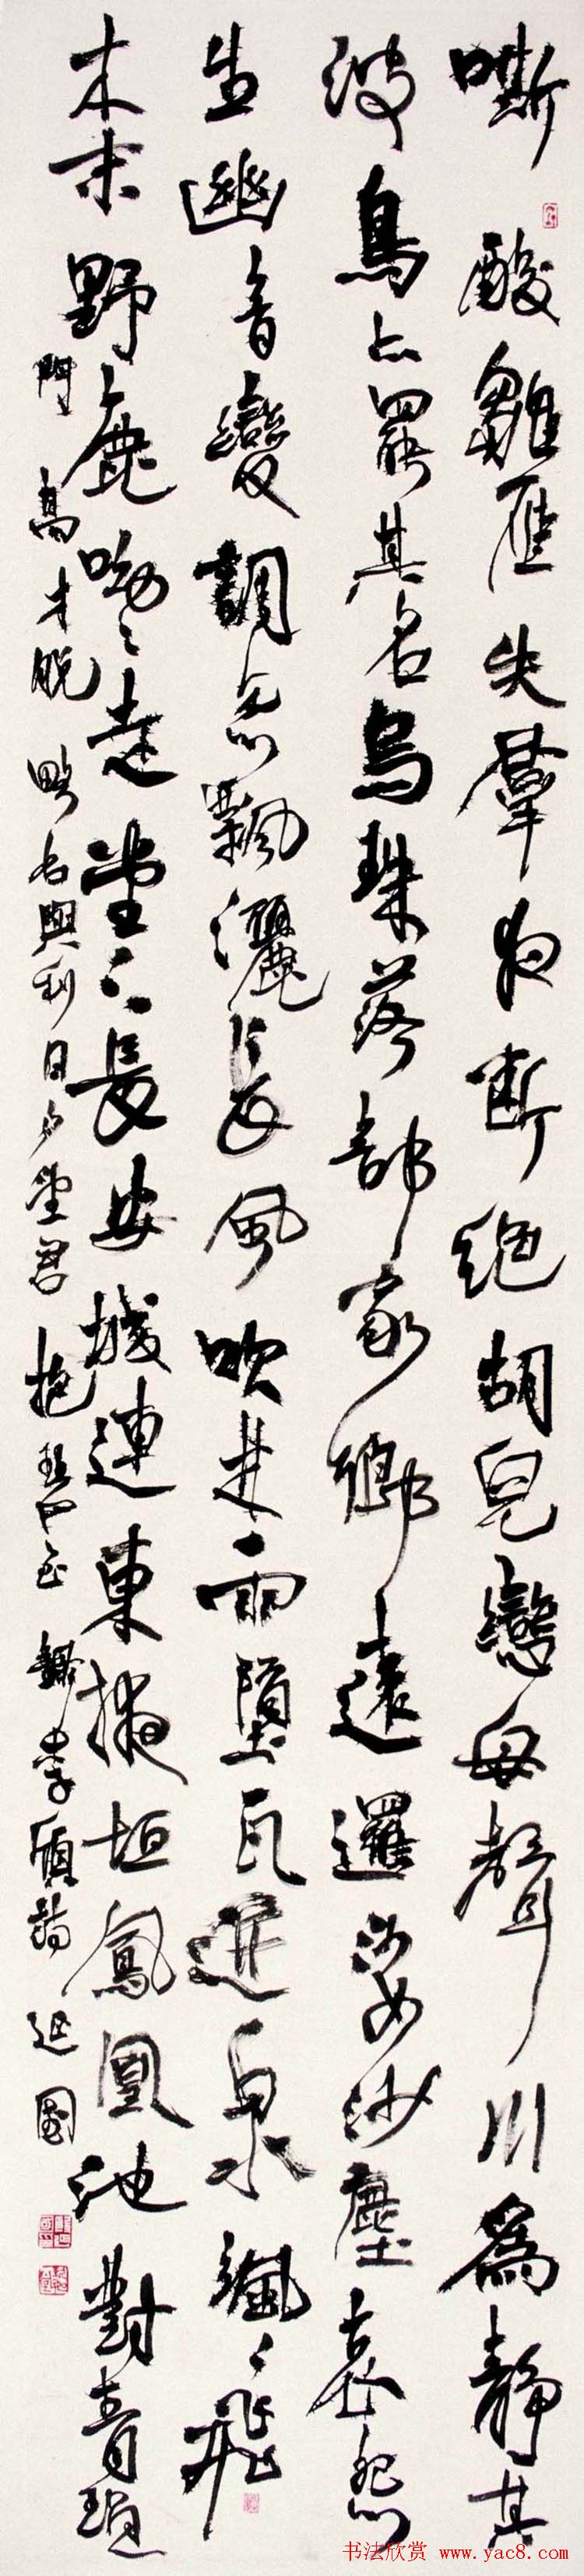 嘶酸雛雁失羣夜斷絕胡兒戀母聲川爲靜其
波鳥亦罷其名烏珠落部家鄉遠邏娑沙塵哀怨
生幽音變調忽飄灑長風吹林雨墮瓦迸泉颯々飛
木末野鹿呦々走堂下長安城連東掖垣鳳凰池對青瑣
門高才脫略名與利日夕望君抱琴至錄李頎詩
书法欣赏 www.yac8.com